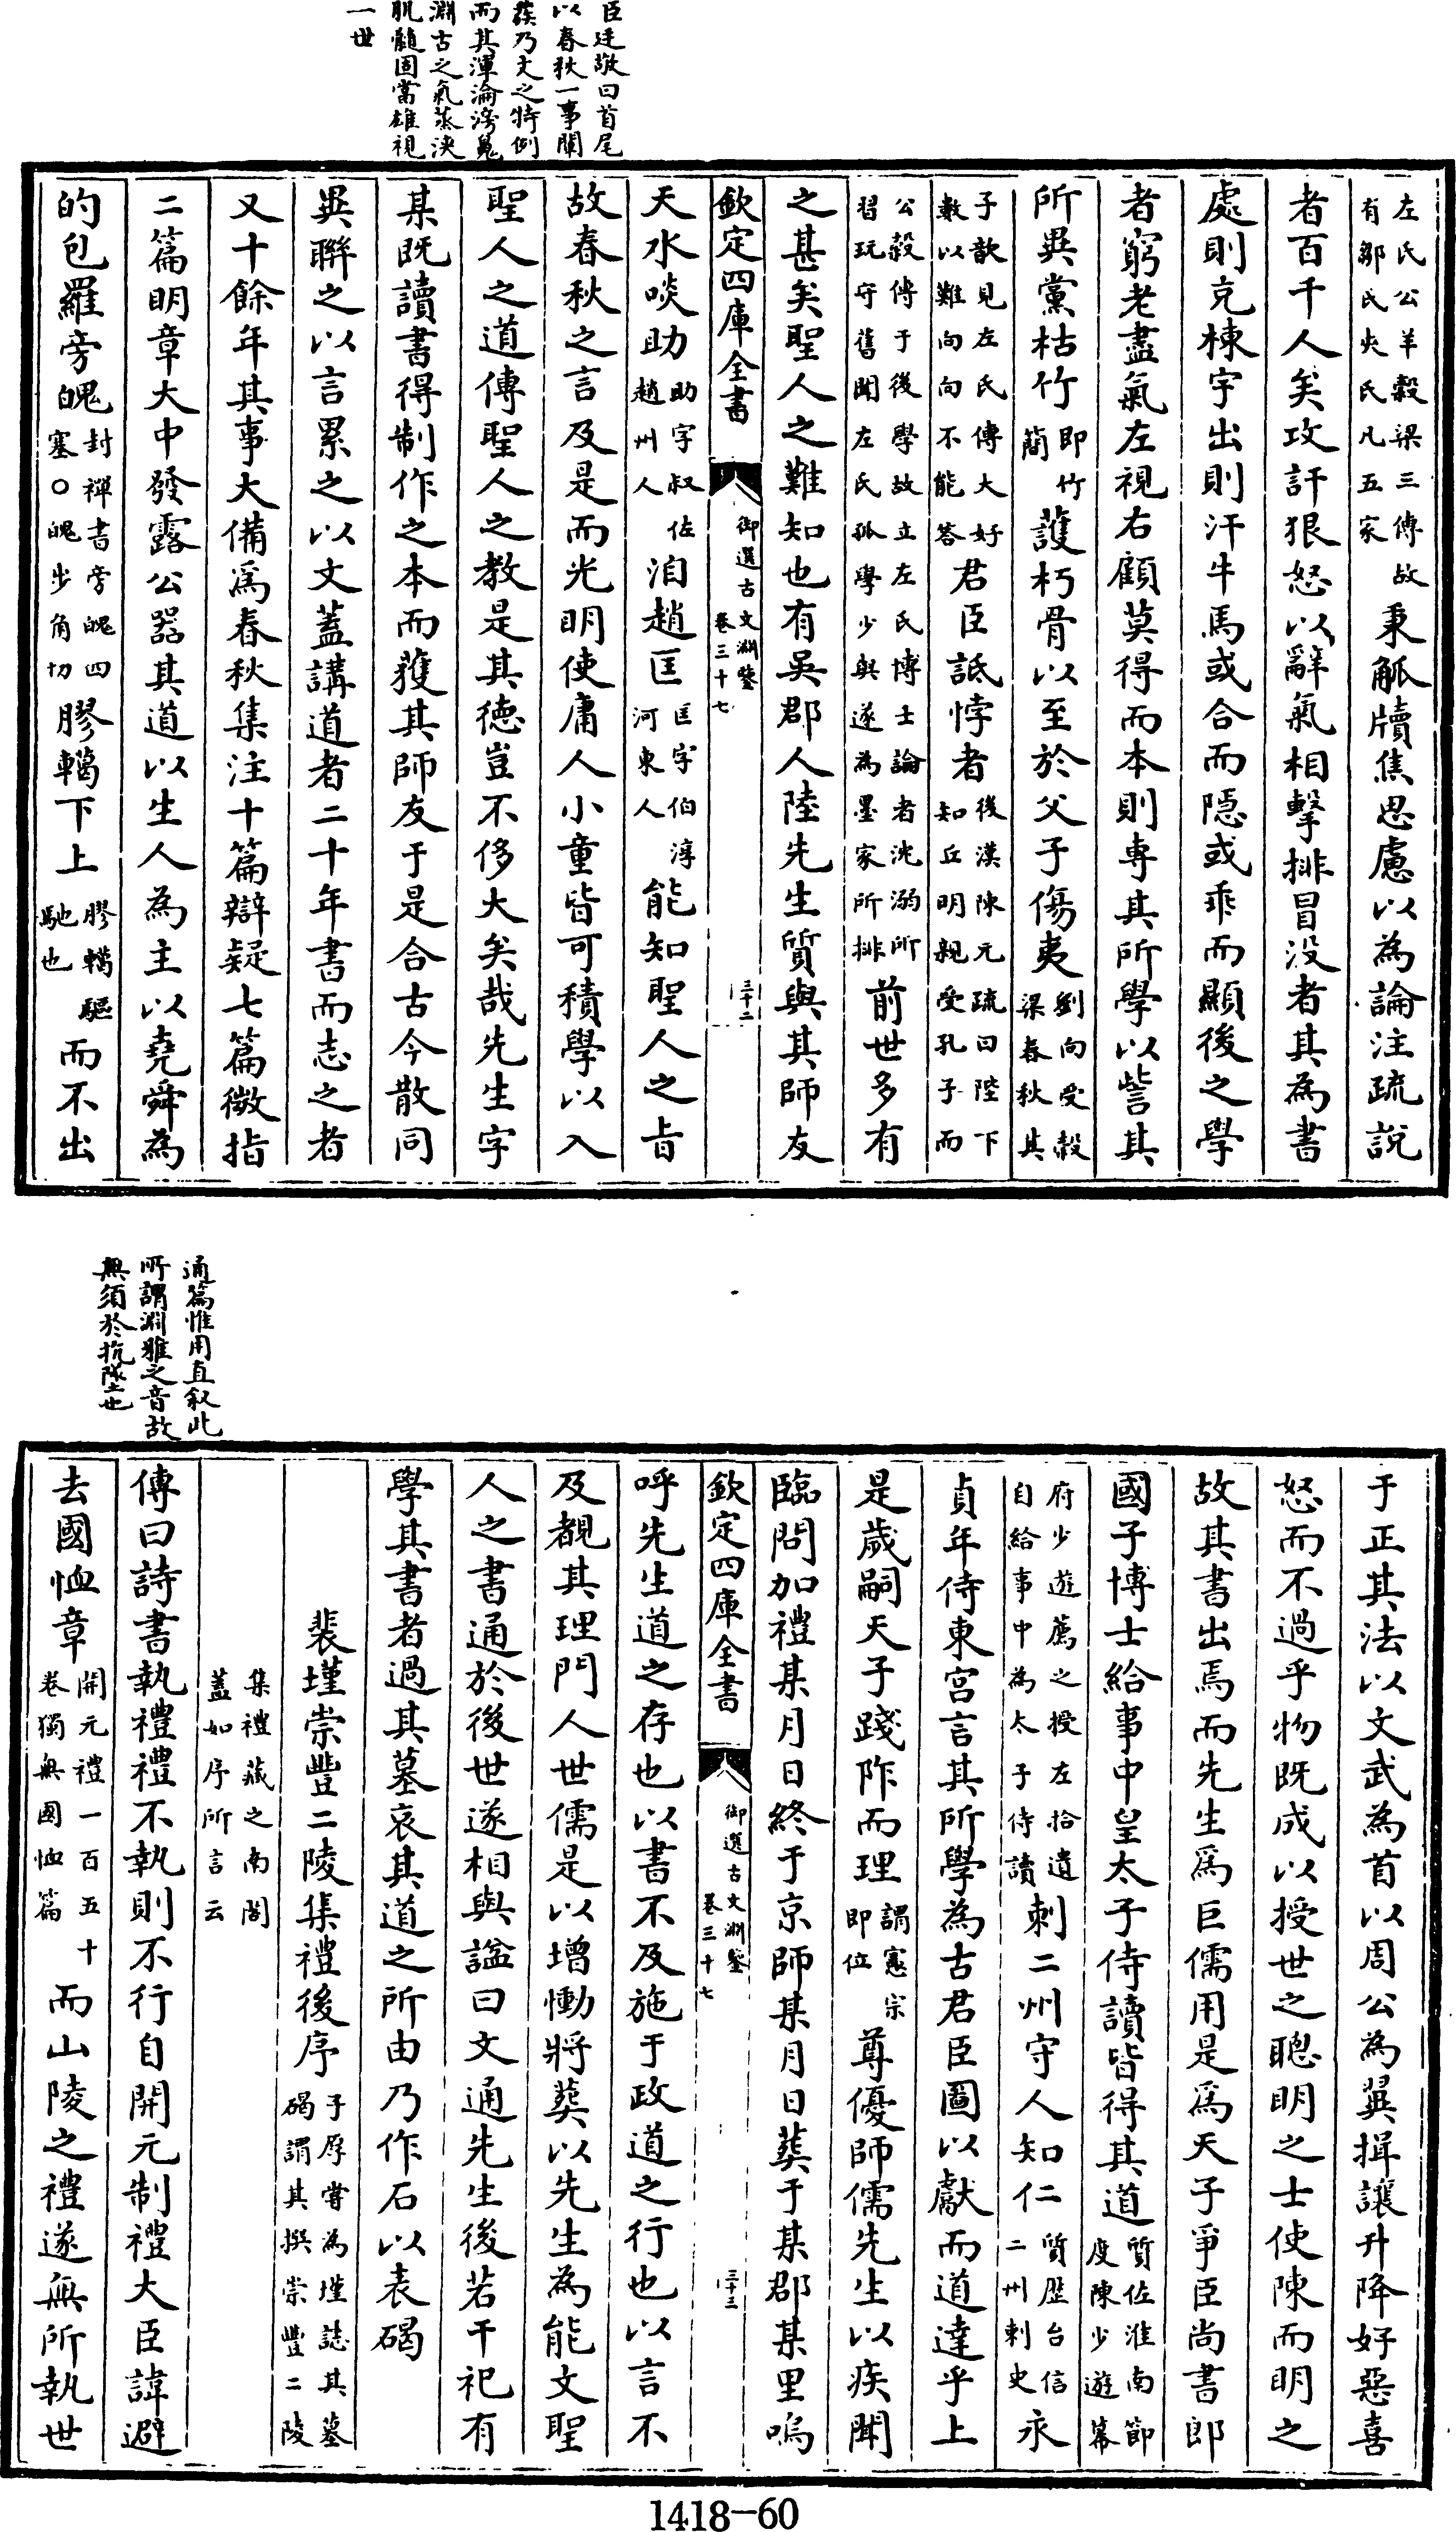 臣廷敬曰首尾
以春秋一事闡
發乃文之特例
而其渾淪滂魄
淵古之氣蒸浹
肌髓固當雄視
一世
左氏公羊穀梁三傳故
有鄒氏夾氏凡五家
秉觚牘焦思慮以為論注疏說
者百千人矣攻訐狠怒以辭氣相擊排冒没者其為書
處則充棟宇出則汗牛馬或合而隱或乖而顯後之學
者窮老盡氣左視右顧莫得而本則專其所學以訾其
所異黨枯竹
即竹
簡
護朽骨以至於父子傷夷
劉向受穀
梁春秋其
子歆見左氏傳大好
數以難向向不能答
君臣詆悖者
後漢陳元疏曰陛下
知丘明親受孔子而
公穀傳于後學故立左氏博士論者沈溺所
習玩守舊聞左氏孤學少與遂為墨家所排
前世多有
之甚矣聖人之難知也有吳郡人陸先生質與其師友
欽定四庫全書
御選古文淵鑒
卷三十七
三十二
天水啖助
助字叔佐
趙州人
洎趙匡
匡字伯淳
河東人
能知聖人之旨
故春秋之言及是而光明使庸人小童皆可積學以入
聖人之道傳聖人之教是其德豈不侈大矣哉先生字
某既讀書得制作之本而獲其師友于是合古今散同
異聯之以言累之以文蓋講道者二十年書而志之者
又十餘年其事大備爲春秋集注十篇辯疑七篇微指
二篇明章大中發露公器其道以生人為主以堯舜為
的包羅旁魄
封禪書旁魄四
塞○魄步角切
膠轕下上
膠轕驅
馳也
而不出
通篇惟用直叙此
所謂淵雅之音故
無須於抗墜也
于正其法以文武為首以周公為翼揖讓升降好惡喜
怒而不過乎物既成以授世之聰明之士使陳而明之
故其書出焉而先生爲巨儒用是爲天子爭臣尚書郎
國子博士給事中皇太子侍讀皆得其道
質佐淮南節
度陳少遊幕
府少遊薦之授左拾遺
自給事中為太子侍讀
刺二州守人知仁
質歷台信
二州刺史
永
貞年侍東宮言其所學為古君臣圖以獻而道達乎上
是歲嗣天子踐阼而理
謂憲宗
即位
尊優師儒先生以疾聞
臨問加禮某月日終于京師某月日葬于某郡某里嗚
欽定四庫全書
御選古文淵鑒
卷三十七
三十三
呼先生道之存也以書不及施于政道之行也以言不
及覩其理門人世儒是以增慟將葬以先生為能文聖
人之書通於後世遂相與諡曰文通先生後若干祀有
學其書者過其墓哀其道之所由乃作石以表碣
裴墐崇豐二陵集禮後序
子厚嘗為墐誌其墓
碣謂其撰崇豐二陵
集禮藏之南閣
蓋如序所言云
傳曰詩書執禮禮不執則不行自開元制禮大臣諱避
去國恤章
開元禮一百五十
卷獨無國恤篇
而山陵之禮遂無所執世
1418-60